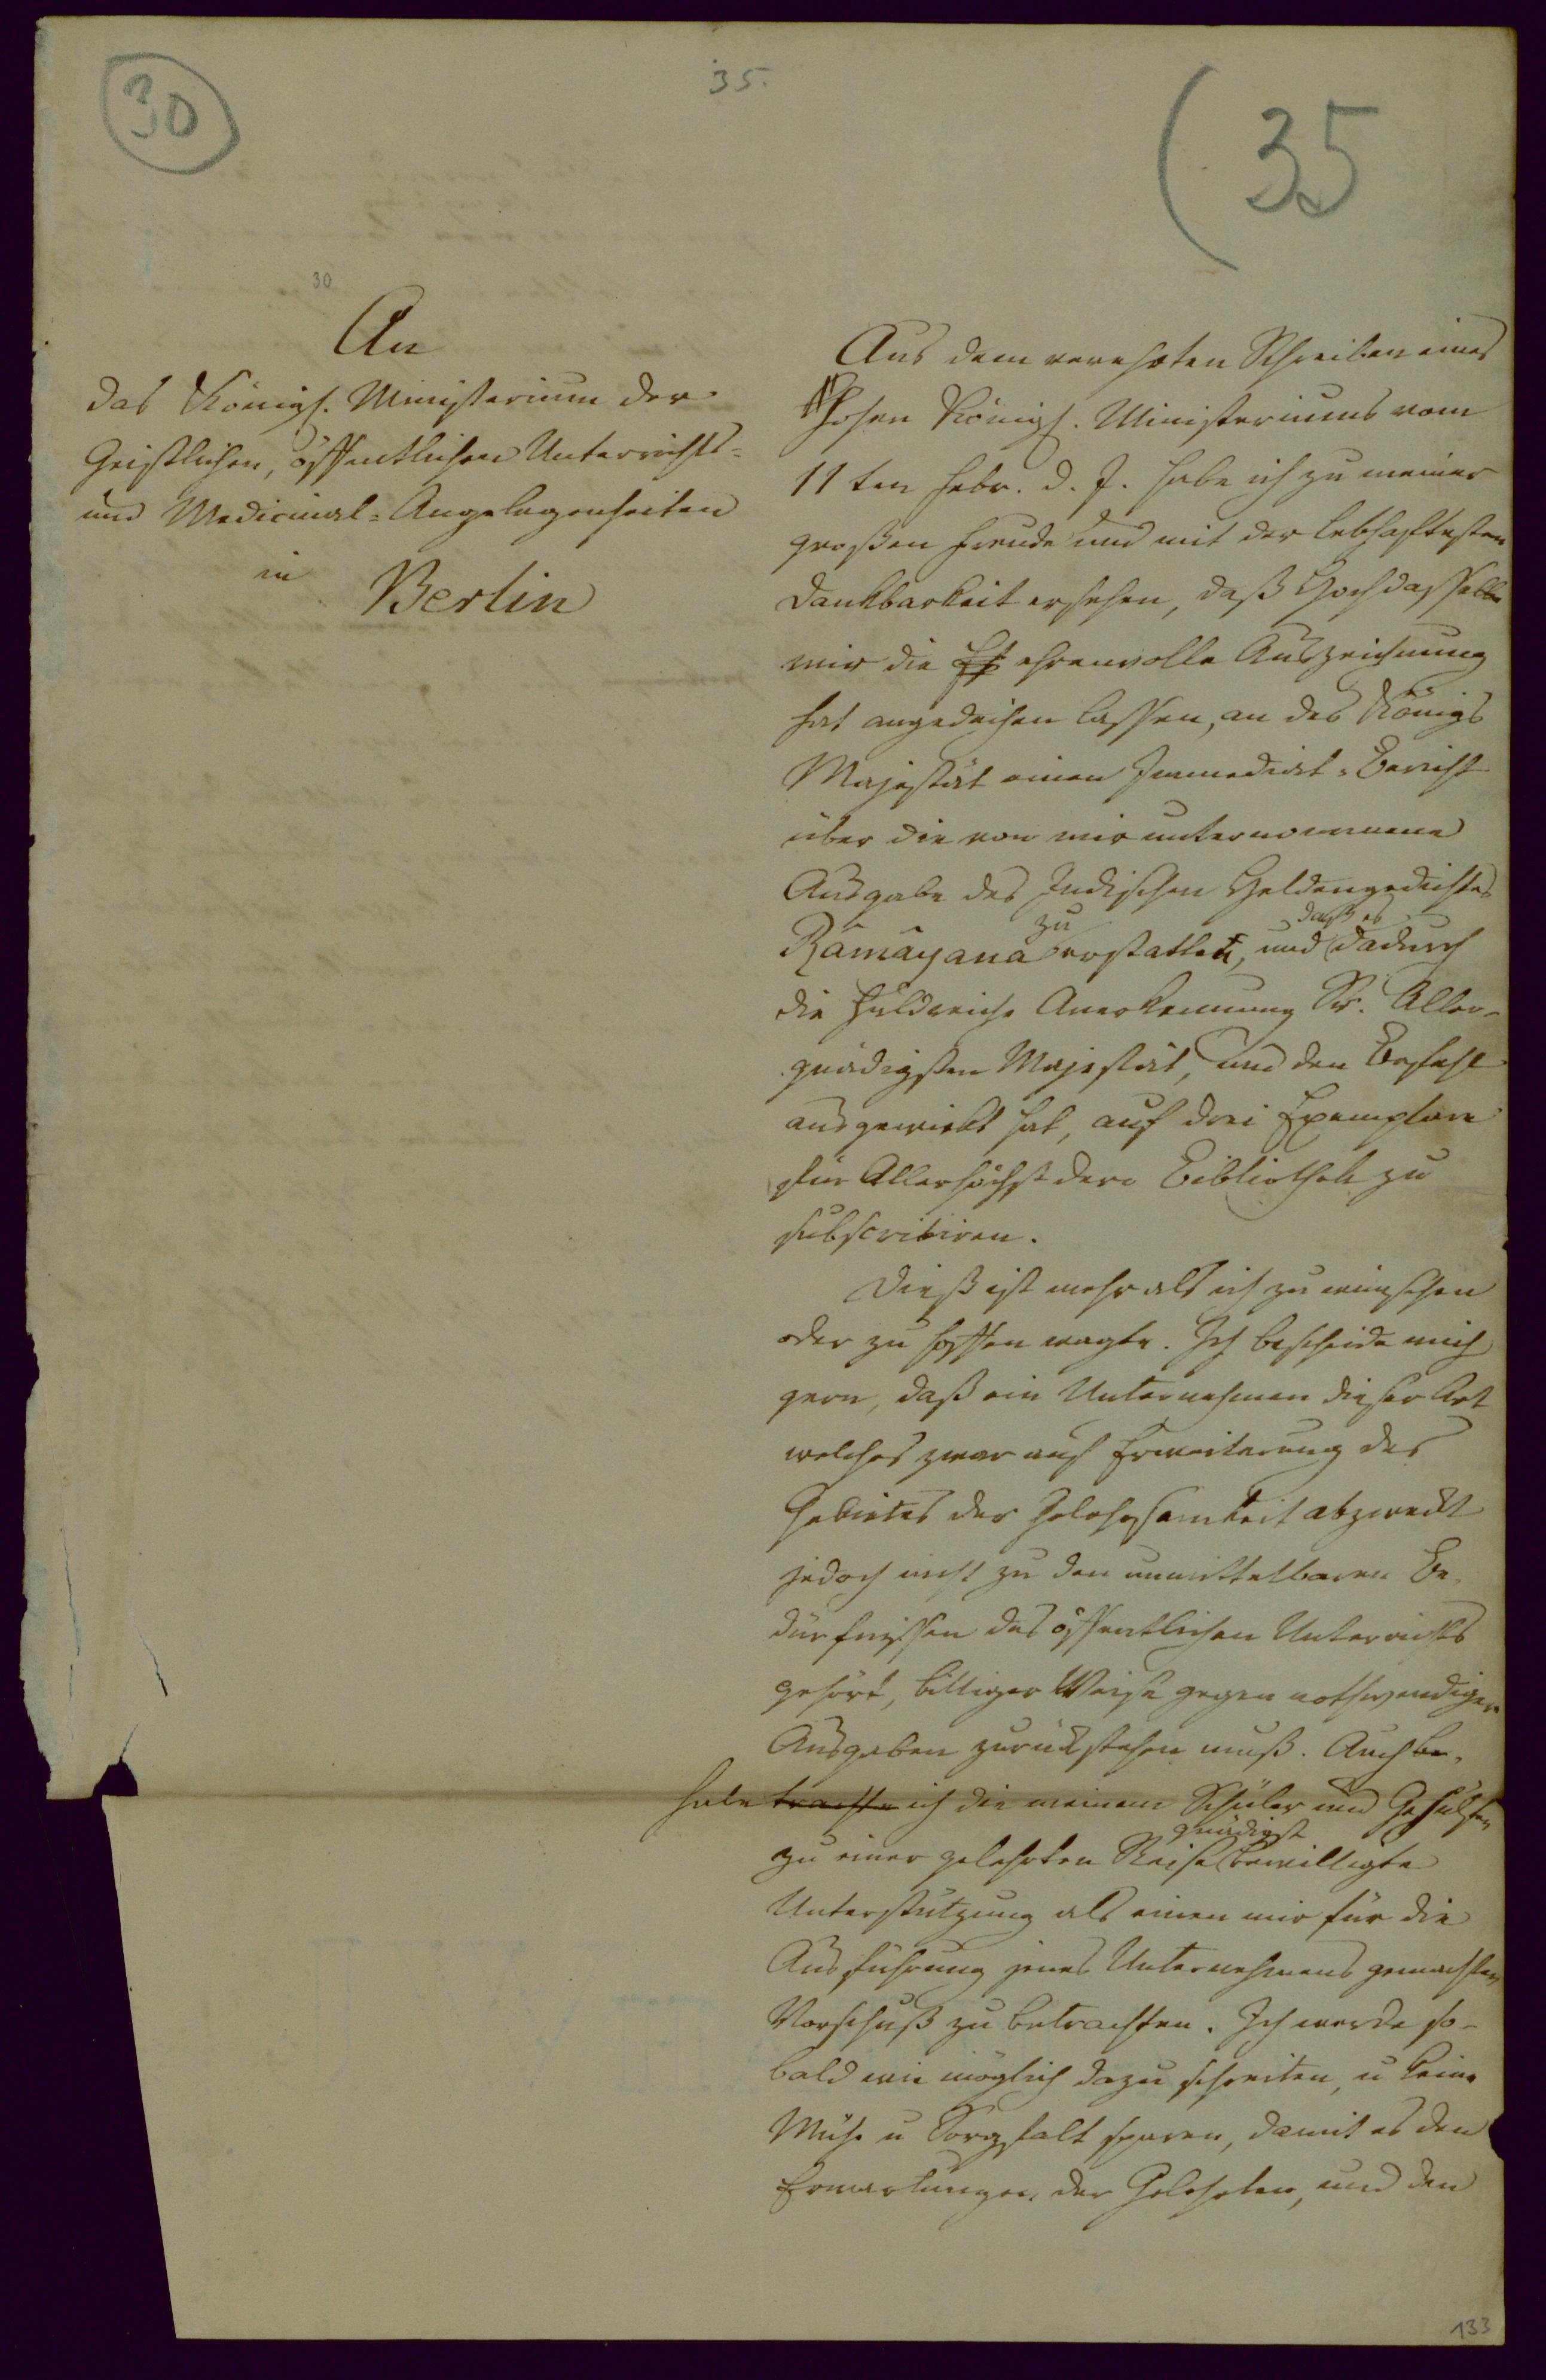 30
35.
(35
30
An
das Königl. Ministerium der
Geistlichen, öffentlichen Unterrichts-
und Medicinal-Angelegenheiten
in Berlin
Aus dem verehrten Schreiben eines
Hohen Königl. Ministeriums vom
11ten Febr. d. J. habe ich zu meiner
großen Freude und mit der lebhaftesten
Dankbarkeit ersehen, daß Hochdasselbe
mir die ehrenvolle Auszeichnung
hat angedeihen lassen, an des Königs
Majestät einen Immediat-Bericht
über die von mir unternommene
Ausgabe des Indischen Heldengedichtes
zu daß es
Râmâyana erstatten, und dadurch
die huldreiche Anerkennung Sr. Aller-
gnädigsten Majestät, und den Befehl
ausgewirkt hat, auf drei Exemplare
für Allerhöchst dero Bibliothek zu
subscribiren.
Dieß ist mehr als ich zu wünschen
oder zu hoffen wagte. Ich bescheide mich
gern, daß ein Unternehmen dieser Art
welches zwar auf Erweiterung des
Gebietes der Gelehrsamkeit abzweckt
jedoch nicht zu den unmittelbaren Be-
dürfnissen des öffentlichen Unterrichts
gehört, billiger Weise gegen nothwendigere
Ausgaben zurückstehen muß. Auch be-
habe trachte ich die meinem Schüler und Gehülfen
gnädigst
zu einer gelehrten Reise bewilligte
Unterstützung als einen mir für die
Ausführung jenes Unternehmens gemachten
Vorschuß zu betrachten. Ich werde so-
bald wie möglich dazu schreiten, u keine
Mühe u Sorgfalt sparen, damit es den
Erwartungen der Gelehrten, und den
133